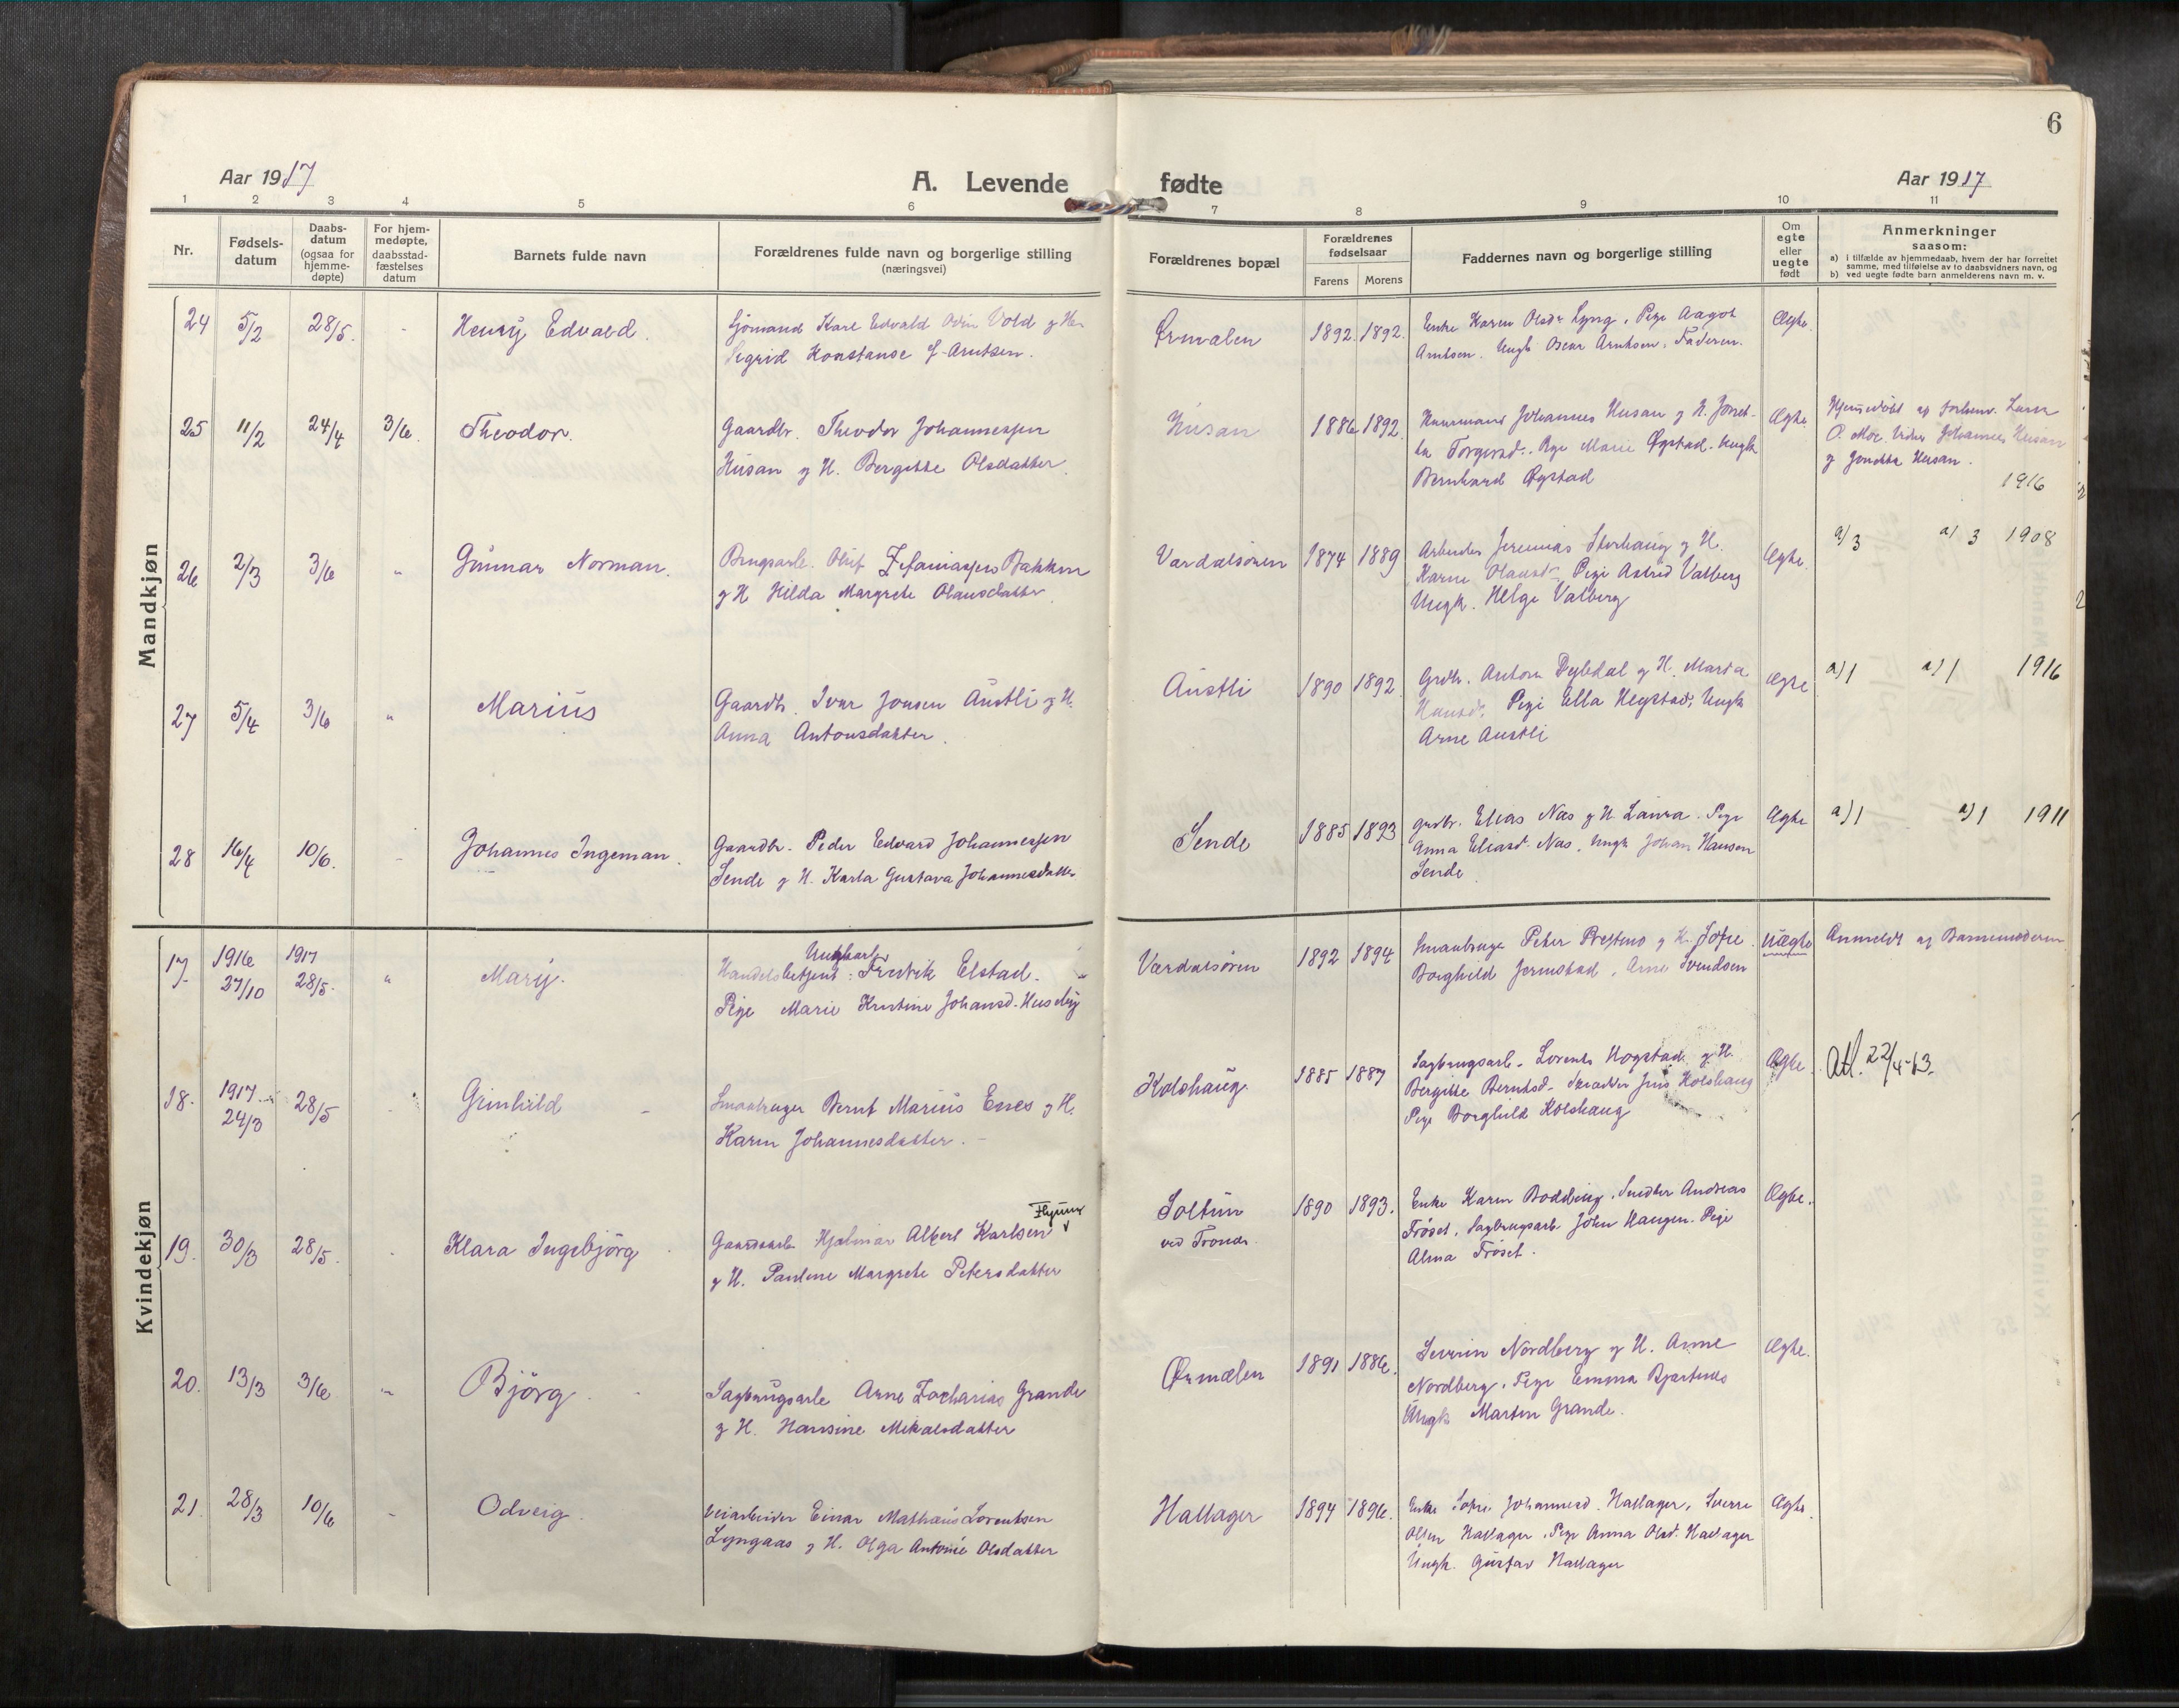 6
Aar 1917
A. Levende fødte
Aar 1917
1 2 3 4 5 6 7 8 9 10 11
Nr.
Fødsels-
datum
Daabs-
datum
(ogsaa for
hjemme-
døpte)
For hjem-
medøpte,
daabsstad-
fæstelses
datum
Barnets fulde navn
Forældrenes fulde navn og borgerlige stilling
(næringsvei)
Forældrenes bopæl
Forældrenes
fødselsaar
Farens Morens
Faddernes navn og borgerlige stilling
Om
egte
eller
uegte
født
Anmerkninger
saasom:
a) i tilfælde av hjemmedaab, hvem der har forrettet
samme, med tilføielse av to daabsvidners navn, og
b) ved uegte fødte barn anmelderens navn m. v.
Mandkjøn
24 5/2 28/5. - Henry Edvald.
Sjømand Karl Edvald Odin Vold g H.
Sigrid Konstanse f. Arntsen.
Ørmælen 1892. 1892.
Enke Karen Olsdr Lyng, Pige Aagot
Arntsen. Ungk Oscar Arntsen. Faderen.
Ægte.
25 11/2 24/4 3/6. Theodor.
Gaardbr. Theodor Johannessen
Husan g H. Bergitte Olsdatter.
Husan 1886 1892.
Kaarmand Johannes Husan g H. Jonet-
Pige Marie Øgstad. Ungk
Bernhard Øgstad
Ægte.
Hjemmedøbt af
O. Moe. Vidner Johannes Husan
g Husan.
1916
26 2/3 3/6 " Gunnar Norman.
Brugsarb. Oluf Zefaniassen Bakken
g H Hilda Margrete Olausdatter.
Værdalsøren 1874 1889
Arbeider Jeremias Storhaug g H.
Karne Olausdr. Pige Astrid Valberg
Ungk. Helge Valberg
Ægte.
a) 3 a) 3 1908
27 5/4 3/6 " Marius
Gaardb. Ivar Jonsen Austli g H.
Anna Antonsdatter.
Austli 1890 1892.
Grdb. Anton Dyldal g H. Marta
Hansdr. Pige Ella Hegstad, Ungk
Arne Austli
Ægte
a) 1 a) 1 1916
28 16/4 10/6. - Johannes Ingeman.
Gaardbr. Peder Edvard Johannessen
Sende g H. Karla Gustava Johannesdatter
Sende 1885 1893
Grdbr. Elias Nas g H Laura. Pige
Anna Eliasd. Nas, Ungk Johan Hansen
Sende
Ægte
a) 1 a) 1 1911
Kvindekjøn
17. 1916 27/10 1917 28/5. " Mary.
Ungkarl
Handelsbetjent: Fredrik Elstad.
Pige Marie Kristine Johansd. Huseby
Værdalsøren 1892 1894
Smaabruger Peter Prestmo g H. Sofie.
Borghild Jermstad, Arne Svendsen
Uægte
Anmeldt af Barnemoderen
18. 1917 24/3 28/5 - Gunhild
Smaabruger Bernt Marius Enes g H.
Karen Johannesdatter.
Kolshaug 1885 1887
Sagbrugsarb. Lorents Hogstad g H.
Bergitte Berntsd. Skrædder Jens Kolshaug
Pige Borghild Kolshaug
Ægte.
Att. 22/4-63.
19. 30/3 28/5. - Klara Ingebjörg
Flyum
Gaardsarb. Hjalmar Albert Karlsen
g H. Pauline Margrete Petersdatter
Soltun
ved Trones.
1890 1893.
Enke Karen Bodding, Snedker Andreas
Fröset, Sagbrugsarb John Haugen. Pige
Alma Fröset.
Ægte.
20. 13/3 3/6 " Björg.
Sagbrugsarb Arne Zacharias Grande
g H. Hansine Mikalsdatter
Ørmælen 1891 1886.
Severin Nordberg g H. Anne
Nordberg, Pige Emma Bjartnes
Ungk Martin Grande.
Ægte.
21. 28/3 10/6 - Odveig.
Veiarbeider Einar Mathæus Lorentsen
Lyngaas g H. Olga Antonie Olsdatter
Hallager 1894 1896.
Enke Sofie Johannesd. Hallager, Sverre
Olsen Hallager, Pige Anna Olsd. Hallager
Ungk. Gustav Hallager
Ægte.